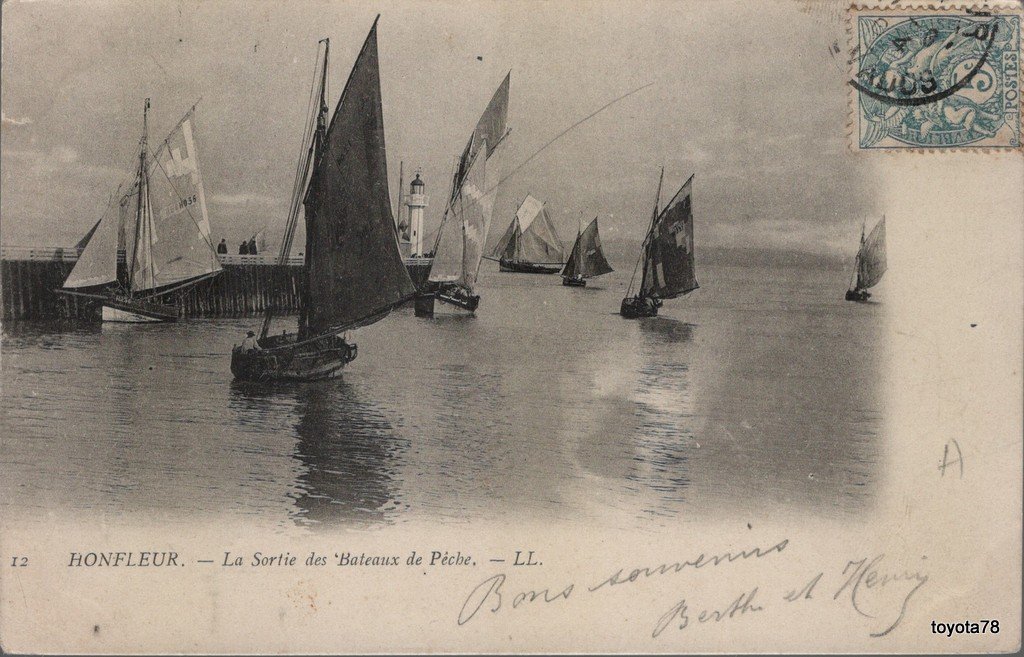 POSTES
12 HONFLEUR. — La Sortie des Bateaux de Pêche. — LL.
A
Bons souvenirs
Berthe et Henry
toyota78